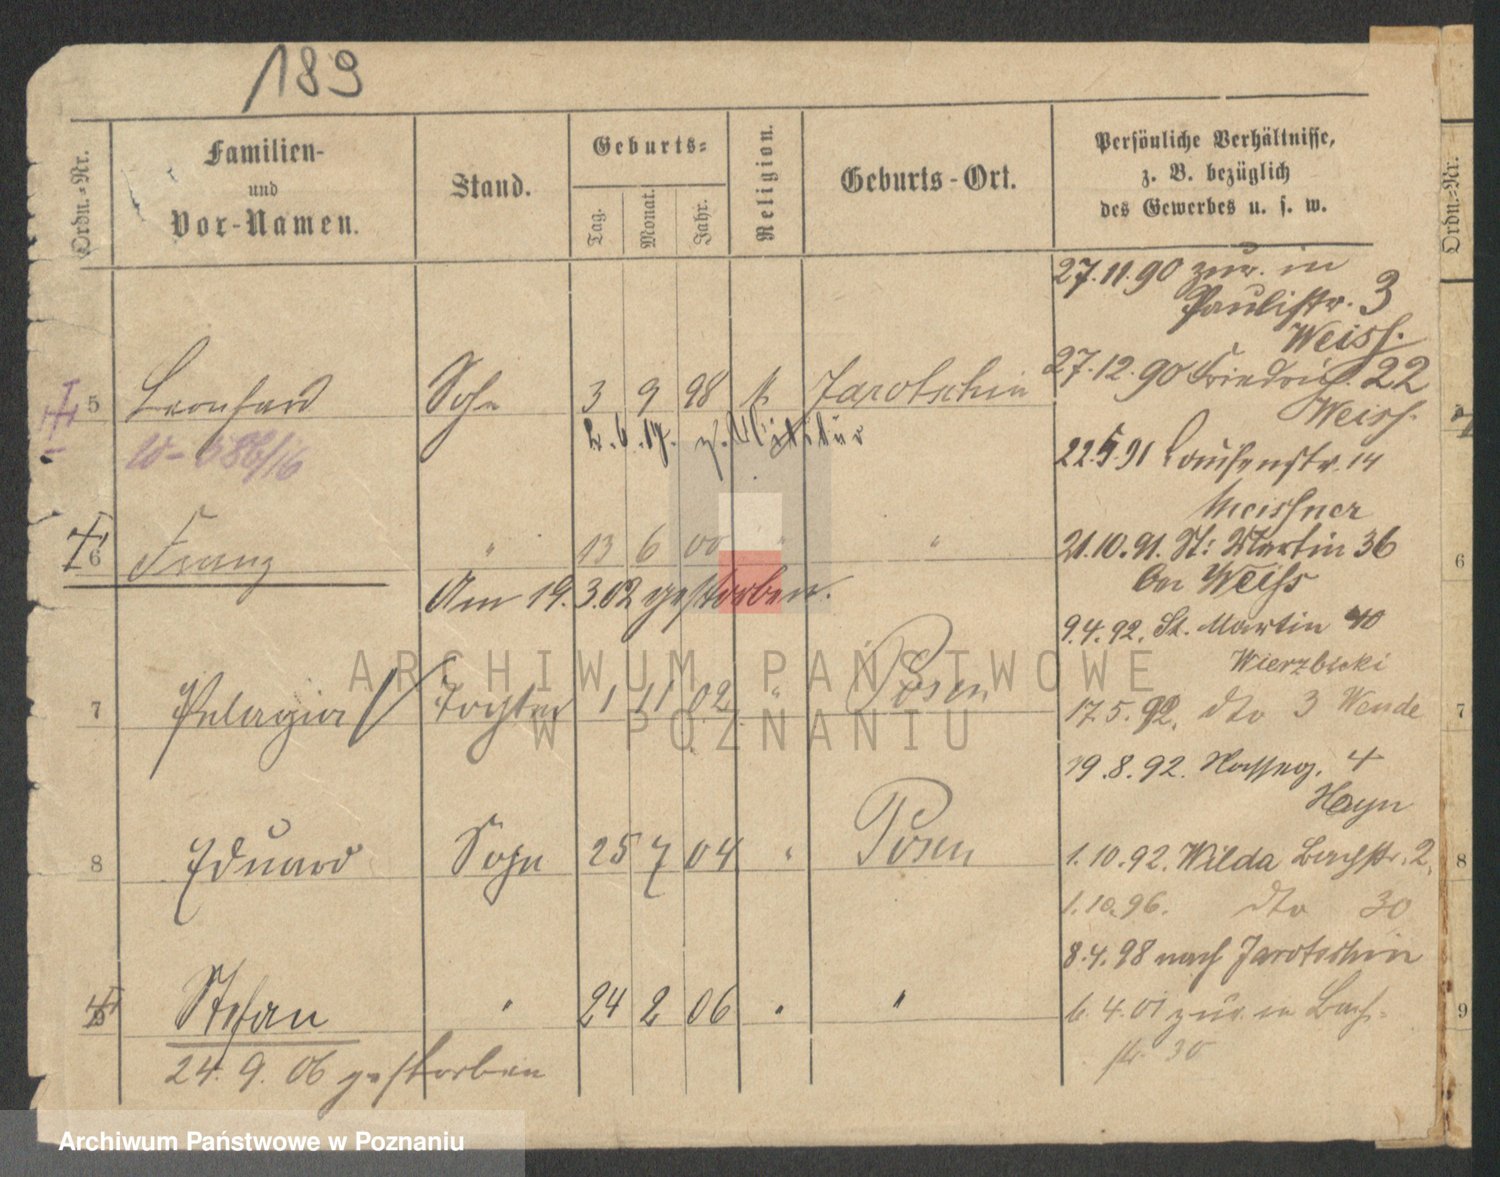 189
Ordn.-Nr.
Familien-
und
Vor-Namen.
Stand.
Geburts-
Tag.
Monat.
Jahr.
Religion.
Geburts-Ort.
Persönliche Verhältnisse,
z. B. bezüglich
des Gewerbes u. s. w.
Ordn.-Nr.
27.11.90 zur. in
Paulistr. 3
Weiss.
27.12.90 Friedrich. 22
Weiss.
5 Leonhard Sohn 3 9 98 k Jarotschin
2.6.17. z. Militär
22.5.91 Louisenstr. 14
Meissner
6 Franz " 13 6 00 " "
Am 19.3.02 gestorben.
21.10.91. St: Martin 36
bei Weiss
9.4.92. St. Martin 40
Wierzbicki
7 Pelagia Tochter 1 11 02 " Posen
17.5.92. dto 3 Wende
19.8.92. 4
Hayn
8 Eduard Sohn 25 7 04 " Posen
1.10.92. Wilda Bachstr. 2.
1.10.96. dto 30
8.4.98 nach Jarotschin
9 Stefan " 24 2 06 " "
24.9.06 gestorben
6.4.01 zur. in Bach-
str. 30
6
7
8
9
ARCHIWUM PAŃSTWOWE
W POZNANIU
Archiwum Państwowe w Poznaniu